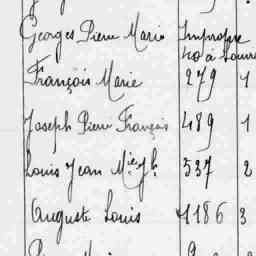 Georges Pierre Marie Impropre
40 à Lour
François Marie 279 1
Joseph Pierre François 489 1
Louis Jean Mie Jh 537 2
Auguste Louis 1186 3